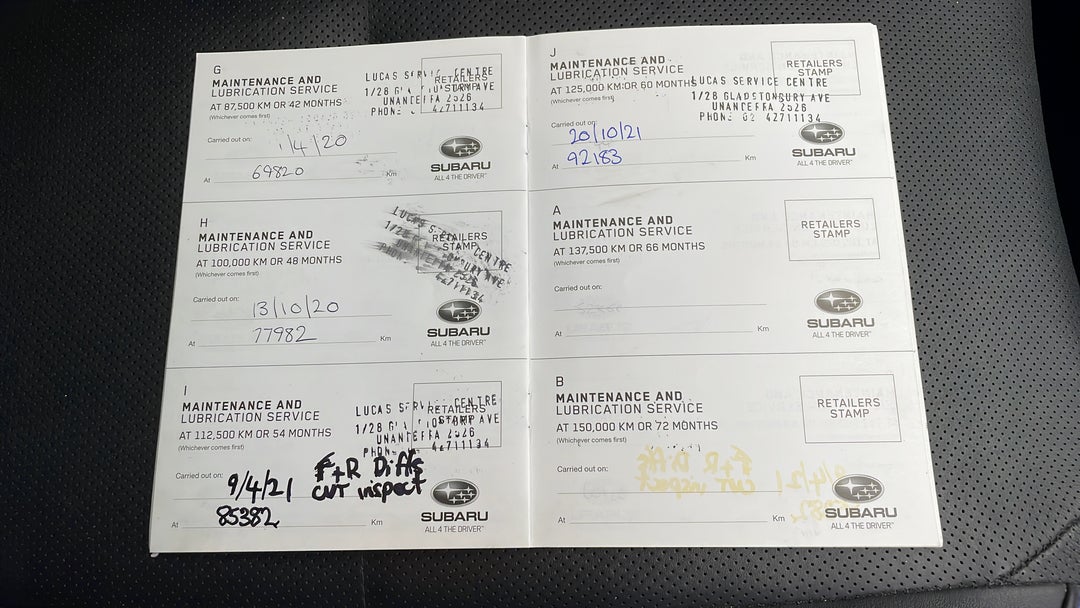 G
MAINTENANCE AND
LUBRICATION SERVICE
AT 87,500 KM OR 42 MONTHS
(Whichever comes first)
RETAILERS
STAMP
LUCAS CENTRE
1/28 AVE
UNANCEFFA 2526
PHONE 42711134
Carried out on:
1/4/20
At 69820 Km
SUBARU
ALL 4 THE DRIVER
H
MAINTENANCE AND
LUBRICATION SERVICE
AT 100,000 KM OR 48 MONTHS
(Whichever comes first)
RETAILERS
STAMP
LUCAS CENTRE
AVE
42711134
Carried out on:
13/10/20
At 77982 Km
SUBARU
ALL 4 THE DRIVER
I
MAINTENANCE AND
LUBRICATION SERVICE
AT 112,500 KM OR 54 MONTHS
(Whichever comes first)
RETAILERS
STAMP
LUCAS CENTRE
1/28 AVE
UNANCEFFA 2526
42711134
Carried out on:
9/4/21
F+R Diffs
CVT inspect
At 85382 Km
SUBARU
ALL 4 THE DRIVER
J
MAINTENANCE AND
LUBRICATION SERVICE
AT 125,000 KM OR 60 MONTHS
(Whichever comes first)
RETAILERS
STAMP
LUCAS SERVICE CENTRE
1/28 GLADSTONBURY AVE
UNANCEFFA 2526
PHONE 02 42711134
Carried out on:
20/10/21
At 92183 Km
SUBARU
ALL 4 THE DRIVER
A
MAINTENANCE AND
LUBRICATION SERVICE
AT 137,500 KM OR 66 MONTHS
(Whichever comes first)
RETAILERS
STAMP
Carried out on:
At Km
SUBARU
ALL 4 THE DRIVER
B
MAINTENANCE AND
LUBRICATION SERVICE
AT 150,000 KM OR 72 MONTHS
(Whichever comes first)
RETAILERS
STAMP
Carried out on:
At Km
SUBARU
ALL 4 THE DRIVER